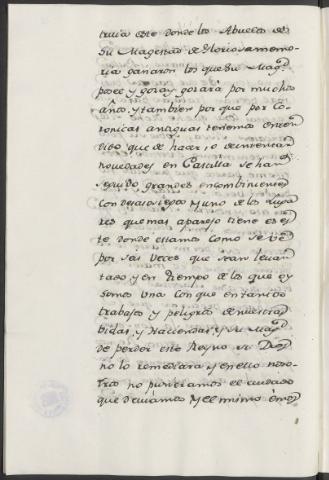 truia este donde los Abuelos de
Su Magestad de Gloriosa memo
ria ganaron los que Su Magd
posee y goza y gozará por muchos
años, y tambien por que por Co
ronicas antiguas tenemos enten
dido que de hacer, o de inventar
novedades en Castilla se han
seguido grandes encombinientes
con desasosiego Muno de los luga
res que mas aparejo tiene es es
te donde estamos como se vé
por seis veces que sean levan
tado y en tiempo de los que oy
somos una con que en tantos
trabajos y peligros de nuestras
bidas, y Haciendas, y Su Magd
de perder este Reyno si Dios
no lo remediara y en ello noso
tros no pusieramos el cuidado
que deviamos y el mismo